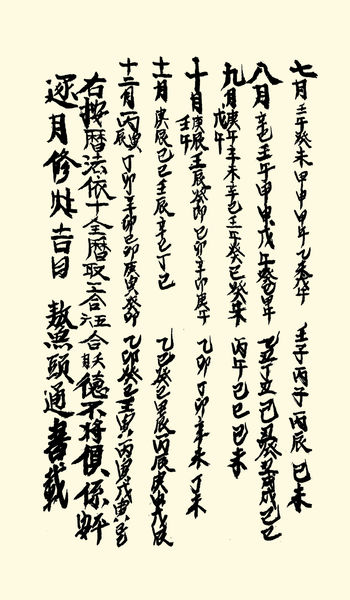 七月 壬午 癸未 甲申 甲午 乙未 戊午 壬子 丙子 丙辰 巳未
八月 辛巳 壬午 甲申 戊午 癸巳 甲午 乙丑 丁丑 己丑 癸丑 己巳
九月 庚午 辛未 辛巳 壬午 癸巳 癸未 戊午 丙午 己巳 巳未
十月 庚辰 壬辰 癸卯 己卯 辛卯 庚午 壬午 乙卯 丁卯 辛未 丁未
十一月 庚辰 己巳 壬辰 辛巳 丁巳 乙巳 癸巳 甲辰 丙辰 庚戌 戊辰
十二月 丙辰 庚辰 丁卯 辛卯 己卯 庚申 癸卯 乙卯 癸巳 壬寅 丙申 戊寅
右按曆法依十全曆取三合 合 德不將俱係好
逐月修灶吉日 鰲頭通書載